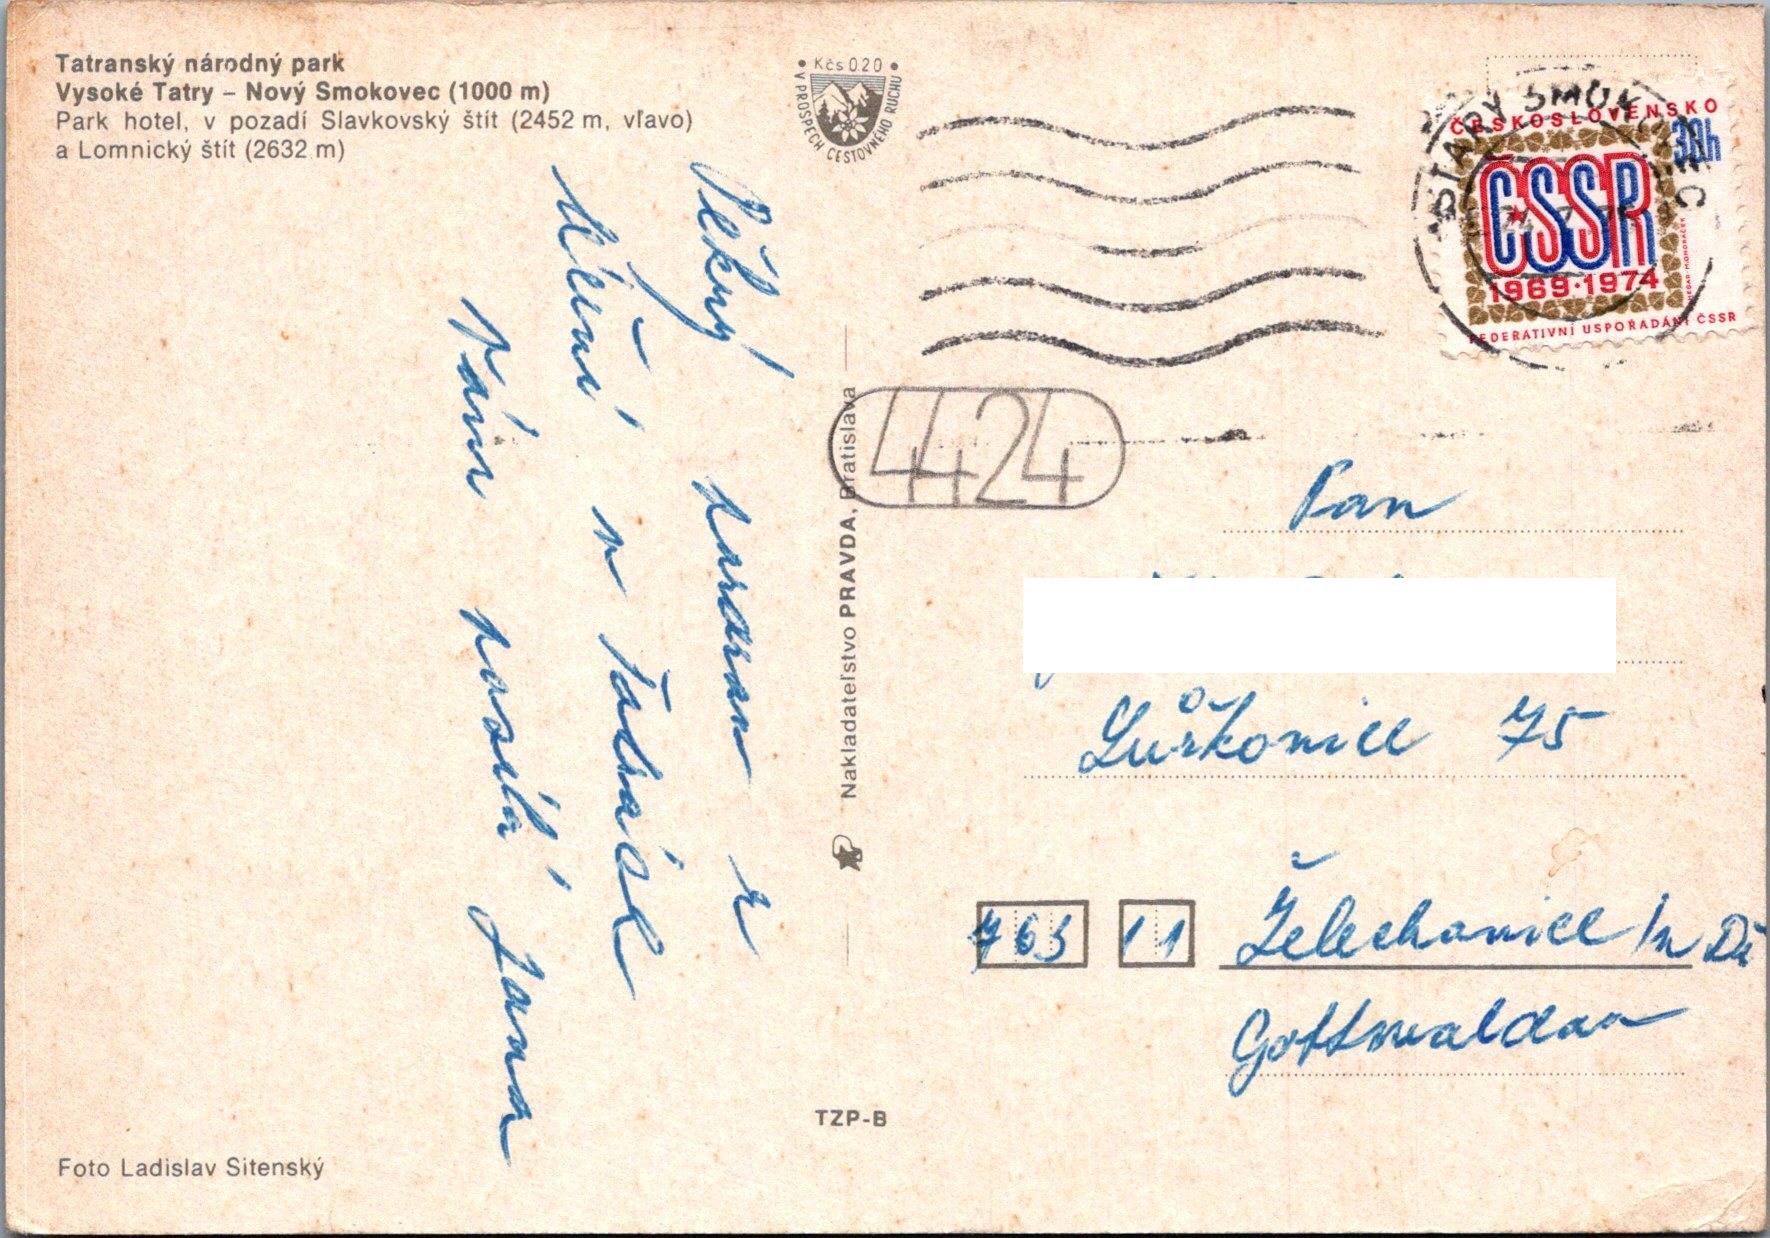 Tatranský národný park
Vysoké Tatry – Nový Smokovec (1000 m)
Park hotel, v pozadí Slavkovský štít (2452 m, vľavo)
a Lomnický štít (2632 m)
Kčs 0.20
V PROSPECH CESTOVNÉHO RUCHU
STARÝ SMOKOVEC
ČESKOSLOVENSKO
30h
ČSSR
1969·1974
FEDERATIVNÍ USPOŘÁDÁNÍ ČSSR
4424
Pěkný pozdrav z
léčení v Tatrách
Vám posílá Jana
Nakladateľstvo PRAVDA, Bratislava
Pan
Lůžkovice 75
763 11 Želechovice /n Dř
Gottwaldov
TZP-B
Foto Ladislav Sitenský